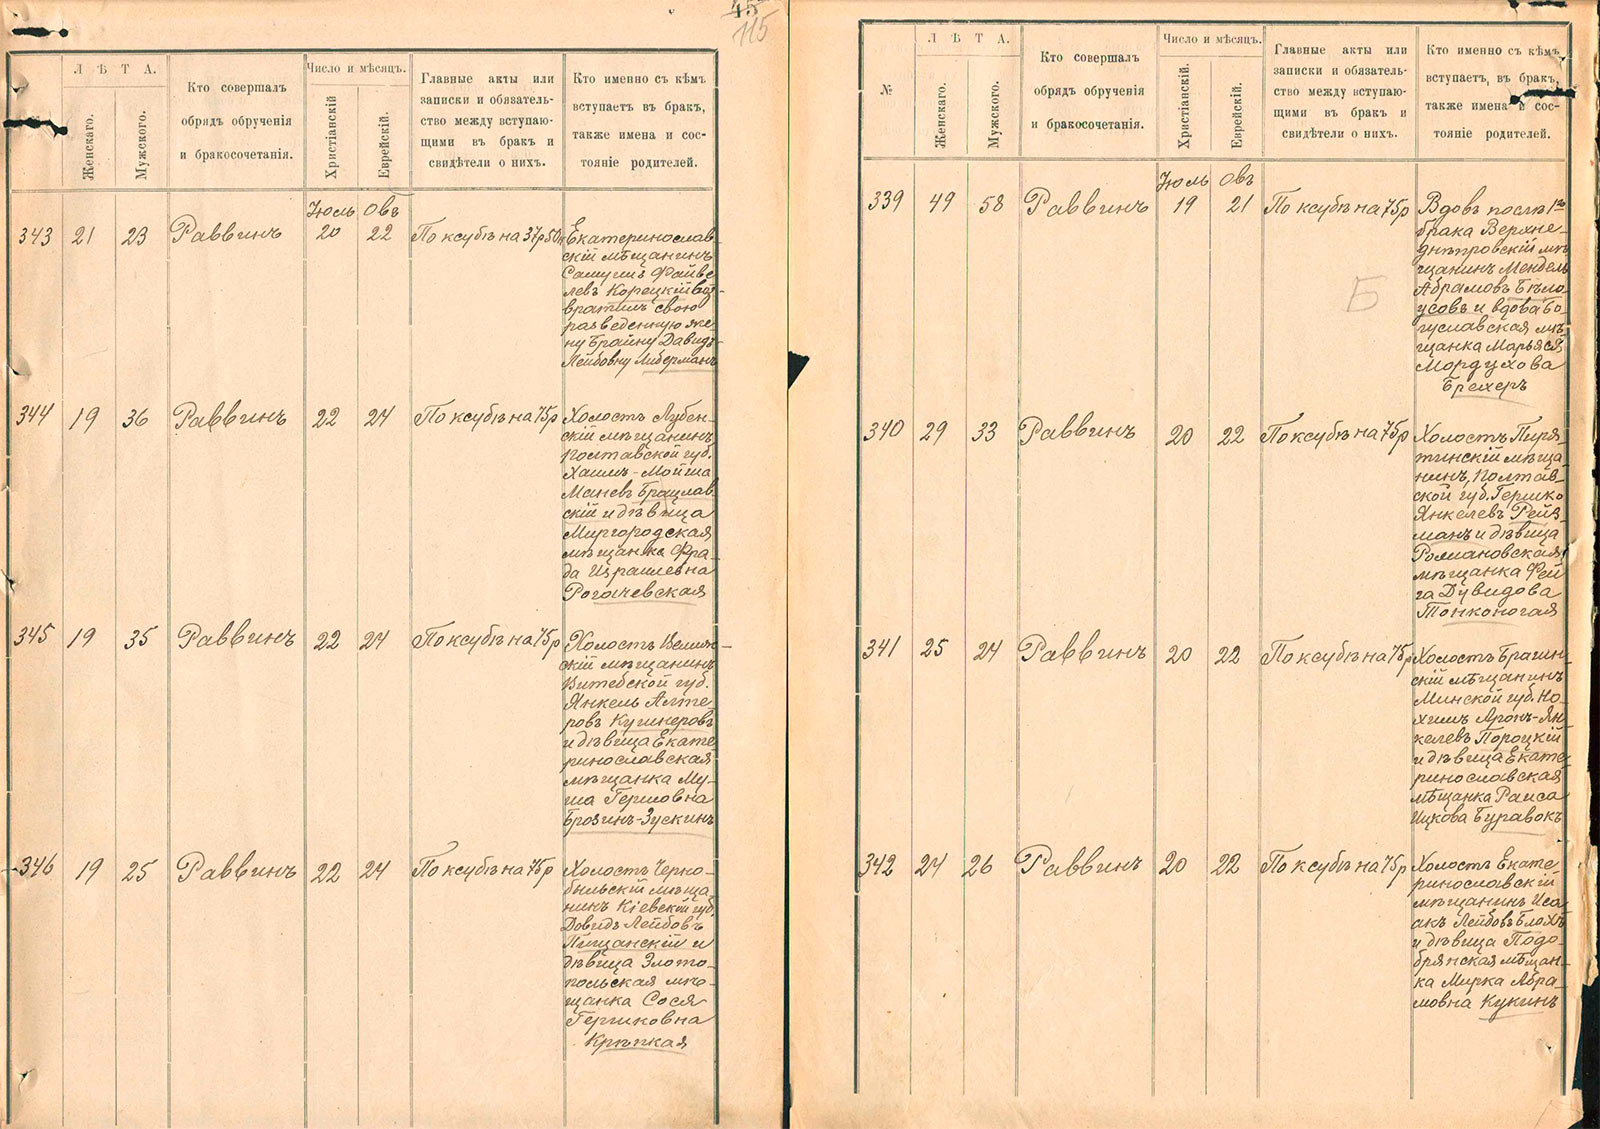 45
115
Л Ѣ Т А.
Женскаго.
Мужского.
Кто совершалъ
обрядъ обрученія
и бракосочетанія.
Число и мѣсяцъ.
Христіанскій
Еврейскій.
Главные акты или
записки и обязатель-
ство между вступаю-
щими въ бракъ и
свидѣтели о нихъ.
Кто именно съ кѣмъ
вступаетъ въ бракъ,
также имена и сос-
тояніе родителей.
Іюль Овъ
343 21 23 Раввинъ 20 22 По ксубѣ на 37р 50к
Екатеринослав-
скій мѣщанинъ
Самуилъ Файве-
левъ Корецкій воз-
вратилъ свою
разведенную же-
ну Брайну Давидъ-
Лейбовну Либерманъ
344 19 36 Раввинъ 22 24 По ксубѣ на 75р
Холостъ Лубен-
скій мѣщанинъ
Полтавской губ.
Хаимъ-Мойша
Маневъ Брацлав-
скій и дѣвица
Миргородская
мѣщанка Фра-
да Израилевна
Рогачевская
345 19 35 Раввинъ 22 24 По ксубѣ на 75р
Холостъ
скій мѣщанинъ
Витебской губ.
Янкель Алте-
ровъ Кушнеровъ
и дѣвица Екате-
ринославская
мѣщанка Му-
ша Гершовна
Брозинъ-Зускинъ
346 19 25 Раввинъ 22 24 По ксубѣ на 75р
Холостъ Черно-
быльскій мѣща-
нинъ Кіевской губ.
Довидъ Лейбовъ
Пищанскій и
дѣвица Злото-
польская мѣ-
щанка Сося
Гершковна
Крѣпкая
№
Л Ѣ Т А.
Женскаго.
Мужского.
Кто совершалъ
обрядъ обрученія
и бракосочетанія.
Число и мѣсяцъ.
Христіанскій.
Еврейскій.
Главные акты или
записки и обязатель-
ство между вступаю-
щими въ бракъ и
свидѣтели о нихъ.
Кто именно съ кѣмъ
вступаетъ, въ бракъ,
также имена и сос-
тояніе родителей.
Іюль Овъ
339 49 58 Раввинъ 19 21 По ксубѣ на 75р
Вдовъ послѣ 1го
брака Верхне-
днѣпровскій мѣ-
щанинъ Мендель
Абрамовъ Бѣло-
усовъ и вдова Бо-
гуславская мѣ-
щанка Марьяся
Мордухова
Брехеръ
Б
340 29 33 Раввинъ 20 22 По ксубѣ на 75р
Холостъ Пиря-
тинскій мѣща-
нинъ, Полтав-
ской губ. Гершко
Янкелевъ Рейз-
манъ и дѣвица
Романовская
мѣщанка Фей-
га Дувидова
Тонконогая
341 25 24 Раввинъ 20 22 По ксубѣ на 75р
Холостъ Брагин-
скій мѣщанинъ
Минской губ. Но-
химъ Аронъ-Ян-
келевъ Пороцкій
и дѣвица Екате-
ринославская
мѣщанка Раиса
Ицкова Буравокъ
342 24 26 Раввинъ 20 22 По ксубѣ на 75р
Холостъ Екате-
ринославскій
мѣщанинъ Иса-
акъ Лейбовъ Блохъ
и дѣвица Подо-
брянская мѣщан-
ка Мирка Абра-
мовна Кукинъ